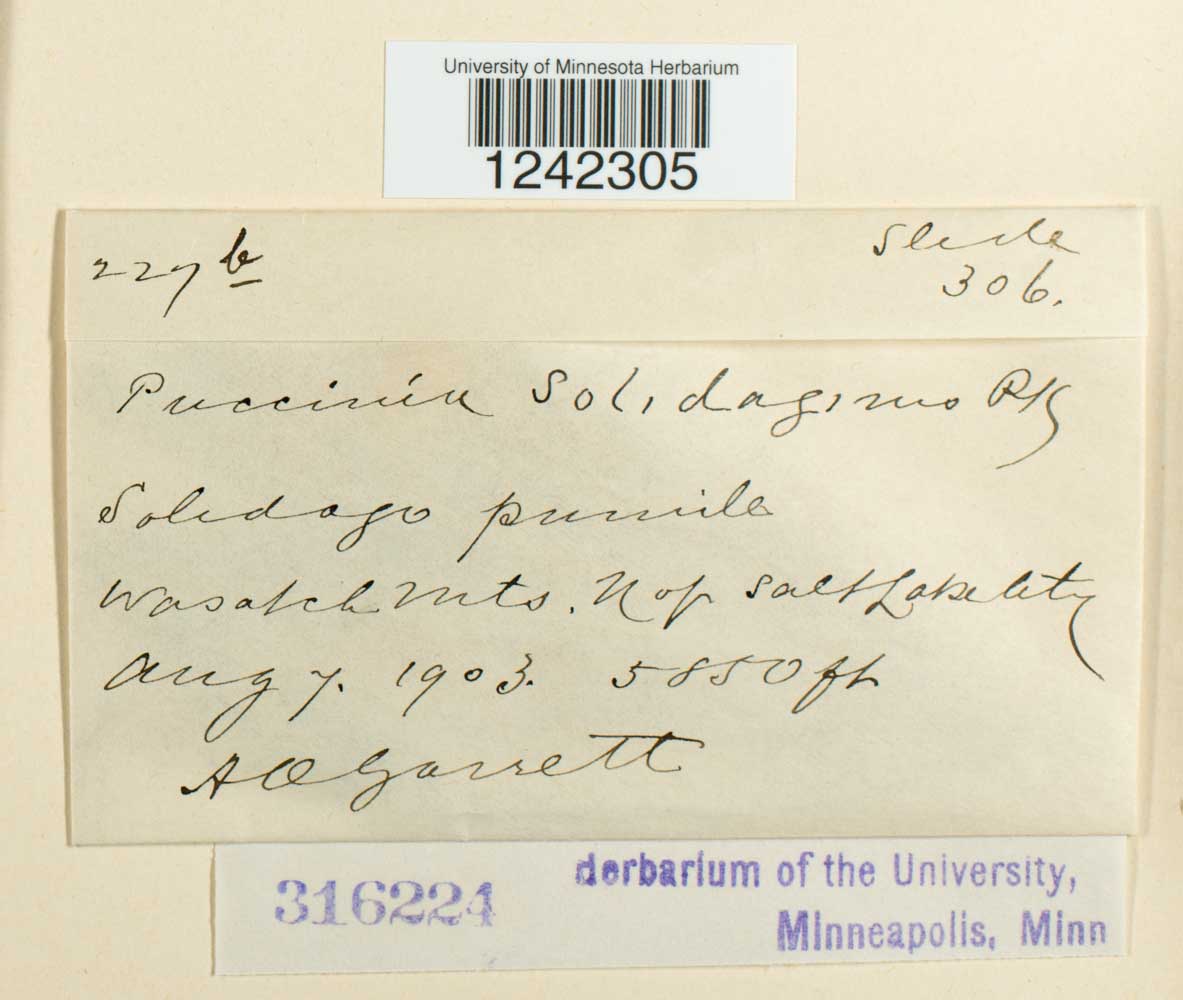 University of Minnesota Herbarium
1242305
227 b
Slide
306.
Puccinia Solidaginis Pk
Solidago pumila
Wasatch Mts. N of Salt Lake City
Aug 7. 1903. 5850 ft
A O Garrett
316224
derbarium of the University,
Minneapolis, Minn